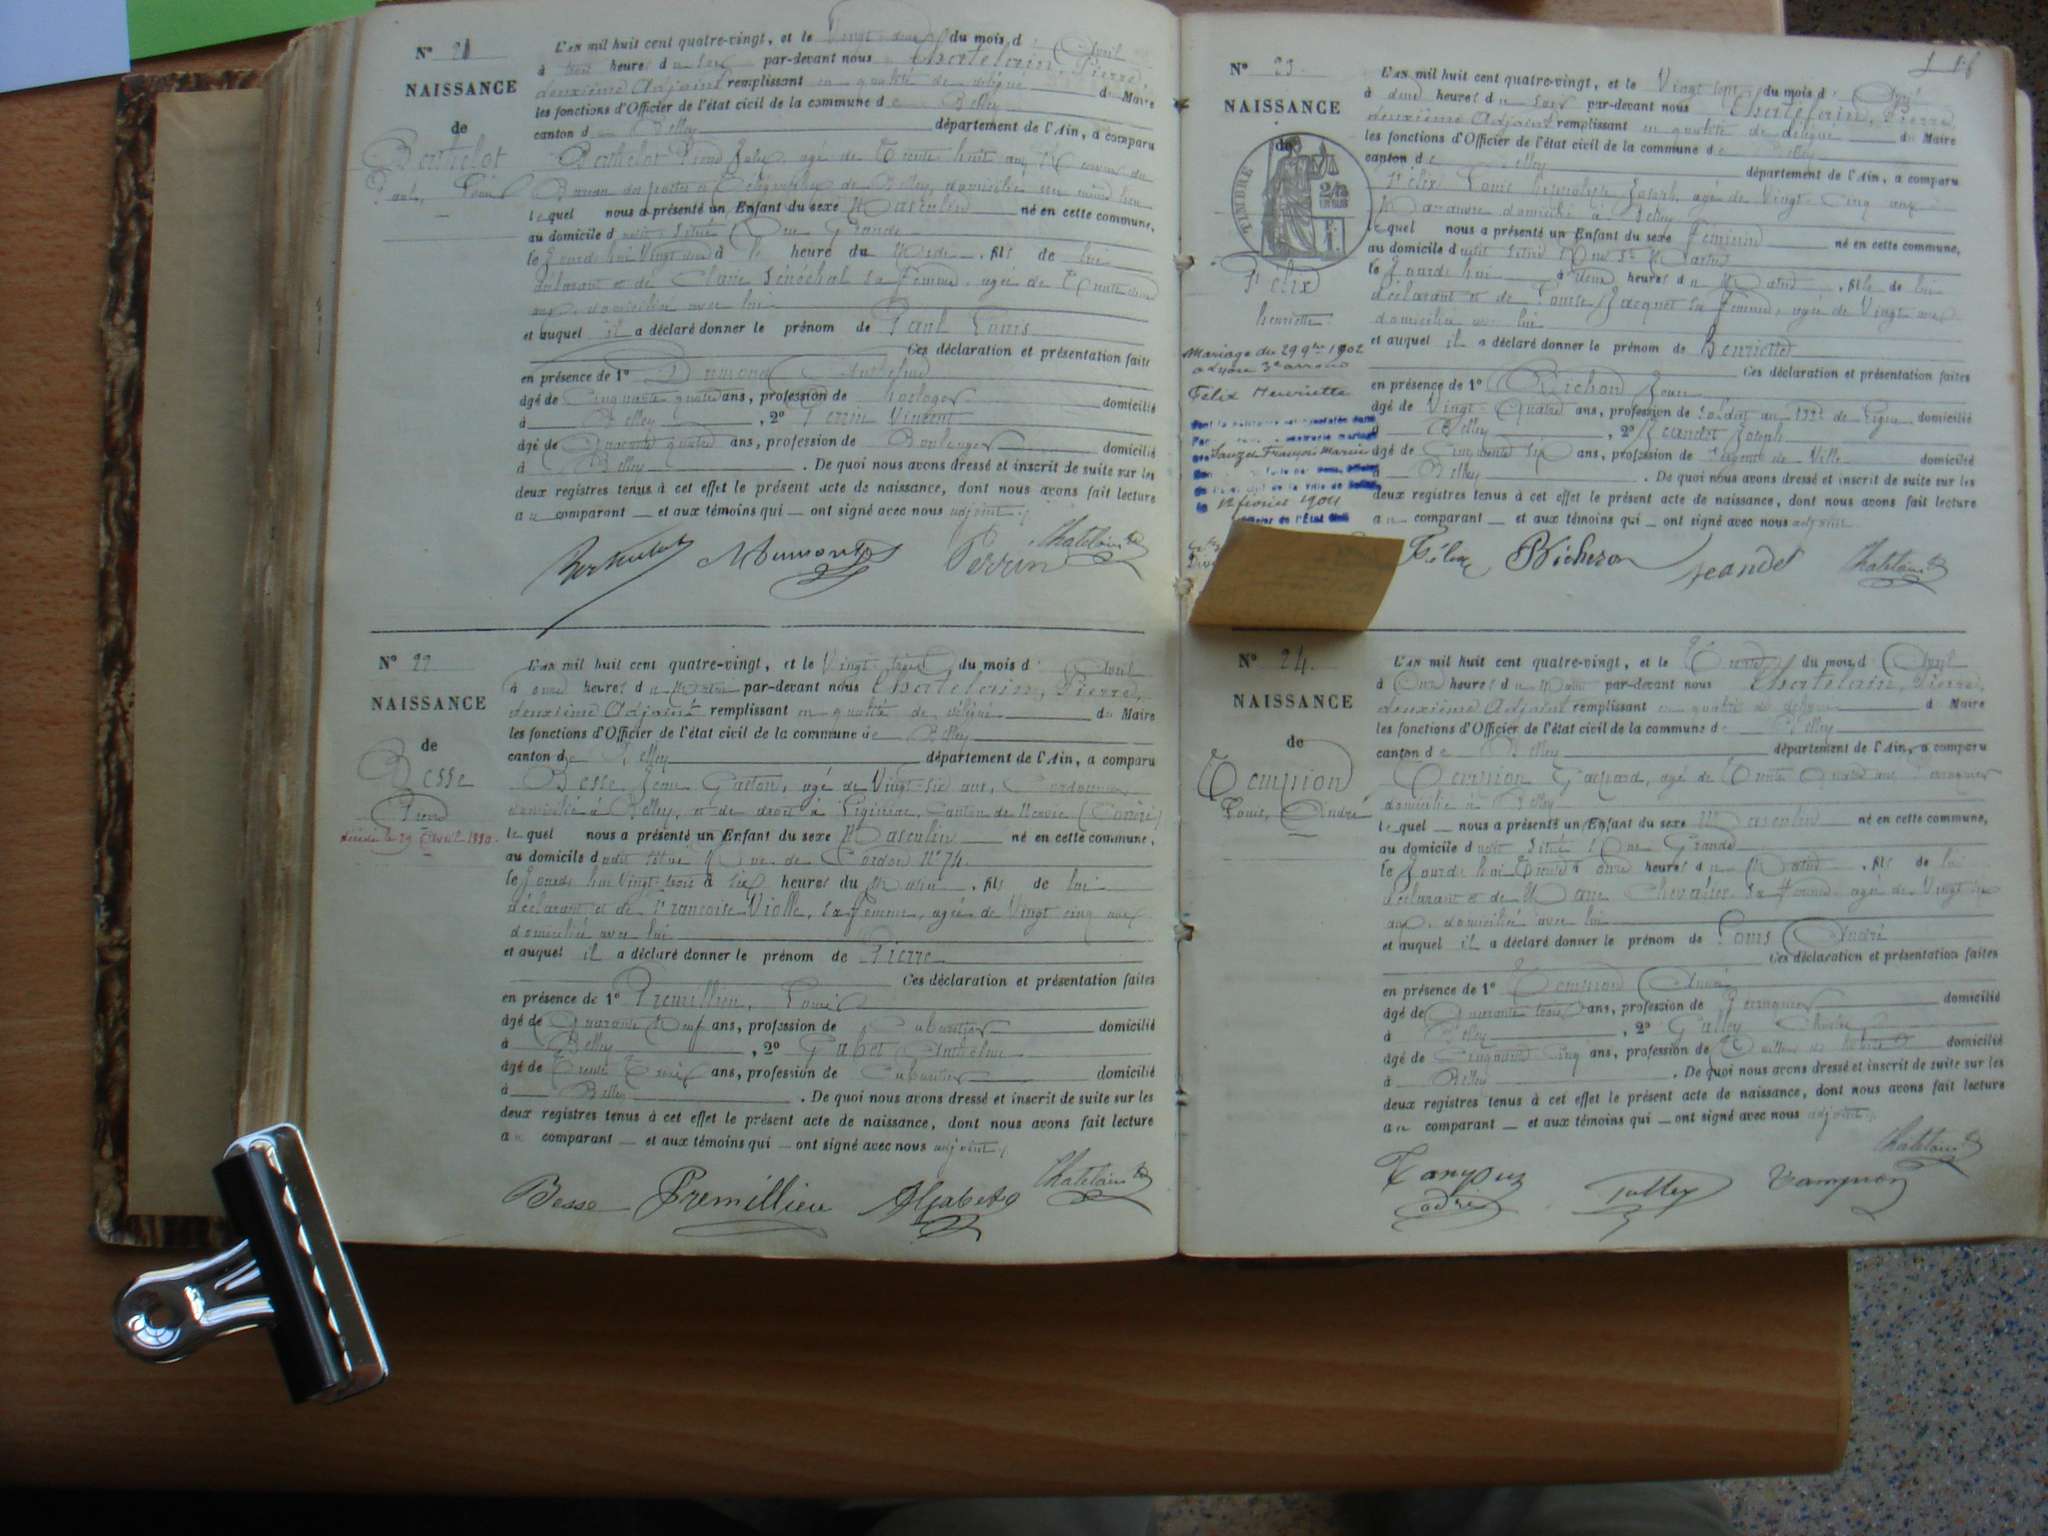 N° 21
NAISSANCE
de
Berthelot
Paul, Louis
L'AN mil huit cent quatre-vingt, et le Vingt-deux du mois d Avril
à trois heures du soir par-devant nous Chatelain, Pierre,
deuxième Adjoint remplissant en qualité de délégué du Maire
les fonctions d'Officier de l'état civil de la commune de Belley
canton de Belley département de l'Ain, a comparu
Berthelot Jules, agé de Trente huit ans,
Bureau des postes et Télégraphes de Belley, domicilié
lequel nous a présenté un Enfant du sexe Masculin né en cette commune,
au domicile dudit situé Rue Grande
le Jourd'hui Vingt deux à heure du , fils de lui
déclarant et de Claire Sénéchal sa femme, agée de Trente deux
ans, domiciliée avec lui
et auquel il a déclaré donner le prénom de Paul Louis
Ces déclaration et présentation faite
en présence de 1° Dumond Anthelme
âgé de Cinquante quatre ans, profession de horloger domicilié
à Belley, 2° Perrin Vincent
âgé de quatre ans, profession de Boulanger domicilié
à Belley. De quoi nous avons dressé et inscrit de suite sur les
deux registres tenus à cet effet le présent acte de naissance, dont nous avons fait lecture
au comparant — et aux témoins qui — ont signé avec nous adjoint.
Berthelot Dumont Perrin Chatelain
N° 22
NAISSANCE
de
Besse
Pierre
décédé le 29 Avril 1880.
L'AN mil huit cent quatre-vingt, et le Vingt-trois du mois d Avril
à onze heures du Matin par-devant nous Chatelain, Pierre,
deuxième Adjoint remplissant en qualité de délégué du Maire
les fonctions d'Officier de l'état civil de la commune de Belley
canton de Belley département de l'Ain, a comparu
Besse Jean Gaston, agé de Vingt-six ans, Cordonnier
domicilié à Belley, et de droit à Canton de (Corrèze)
lequel nous a présenté un Enfant du sexe Masculin né en cette commune,
au domicile dudit situé Rue de Cordon N° 74.
le Jourd'hui Vingt-trois à Six heures du Matin, fils de lui
déclarant et de Francoise Violle, sa femme, agée de Vingt cinq ans
domiciliée avec lui
et auquel il a déclaré donner le prénom de Pierre
Ces déclaration et présentation faites
en présence de 1° Premillieu, Louis
âgé de Quarante Neuf ans, profession de Cabaretier domicilié
à Belley, 2° Gabet Anthelme
âgé de Trente Trois ans, profession de Cabaretier domicilié
à Belley. De quoi nous avons dressé et inscrit de suite sur les
deux registres tenus à cet effet le présent acte de naissance, dont nous avons fait lecture
au comparant — et aux témoins qui — ont signé avec nous adjoint.
Besse Premillieu Gabet Chatelain
N° 23
NAISSANCE
de
TIMBRE
Félix
henriette
Mariage du 29 9bre 1902
a Lyon 3e arrond
Félix Henriette
François Marius
12 février 1904
de l'État
L'AN mil huit cent quatre-vingt, et le Vingt sept du mois d Avril
à deux heures du soir par-devant nous Chatelain, Pierre,
deuxième Adjoint remplissant en qualité de délégué du Maire
les fonctions d'Officier de l'état civil de la commune de Belley
canton de Belley département de l'Ain, a comparu
Félix Louis Joseph, agé de Vingt-Cinq ans
domicilié à Belley
lequel nous a présenté un Enfant du sexe féminin né en cette commune,
au domicile dudit situé Rue St Martin
le Jourd'hui à deux heures du Matin, fille de lui
déclarant et de Louise Jacquet sa femme, agée de Vingt ans
domiciliée avec lui
et auquel il a déclaré donner le prénom de Henriette
Ces déclaration et présentation faites
en présence de 1° Jean
âgé de Vingt-Quatre ans, profession de soldat au 133e de Ligne domicilié
à Belley, 2° Jeandet Joseph
âgé de Cinquante six ans, profession de Sergent de Ville domicilié
à Belley. De quoi nous avons dressé et inscrit de suite sur les
deux registres tenus à cet effet le présent acte de naissance, dont nous avons fait lecture
au comparant — et aux témoins qui — ont signé avec nous adjoint.
Félix Jeandet Chatelain
N° 24.
NAISSANCE
de
Tempion
Louis, André
L'AN mil huit cent quatre-vingt, et le Trente du mois d Avril
à Onze heures du Matin par-devant nous Chatelain, Pierre,
deuxième Adjoint remplissant en qualité de délégué du Maire
les fonctions d'Officier de l'état civil de la commune de Belley
canton de Belley département de l'Ain, a comparu
Tempion Gaspard, agé de Trente Quatre ans
domicilié à Belley
lequel — nous a présenté un Enfant du sexe Masculin né en cette commune,
au domicile dudit situé Rue Grande
le Jourd'hui Trente à onze heures du Matin, fils de lui
déclarant et de Marie Chevalier sa femme agée de Vingt
ans, domiciliée avec lui
et auquel il a déclaré donner le prénom de Louis André
Ces déclaration et présentation faites
en présence de 1° Tempion
âgé de Quarante trois ans, profession de domicilié
à Belley, 2°
âgé de Cinquante Cinq ans, profession de Tailleur domicilié
à Belley. De quoi nous avons dressé et inscrit de suite sur les
deux registres tenus à cet effet le présent acte de naissance, dont nous avons fait lecture
au comparant — et aux témoins qui — ont signé avec nous adjoint.
Chatelain